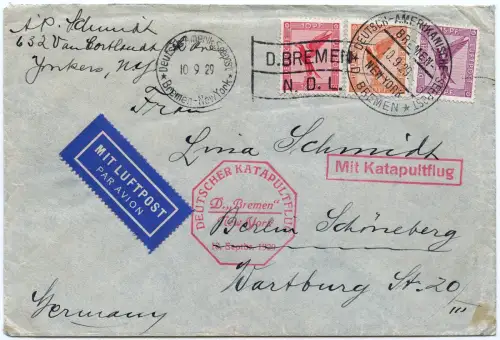 A.P. Schmidt
652 Van Cortlandt
Yonkers, N.Y.
Deutsch-Amerik. Seepost
10 9 29
* Bremen-New York *
D. BREMEN
N. D. L.
DEUTSCH-AMERIKANISCHE SEEPOST
BREMEN-
NEW YORK
* D. BREMEN *
Frau
Lina Schmidt
MIT LUFTPOST
PAR AVION
Mit Katapultflug
DEUTSCHER KATAPULTFLUG
D. „Bremen"
New York
Berlin Schöneberg
Wartburg St. 20
III
Germany